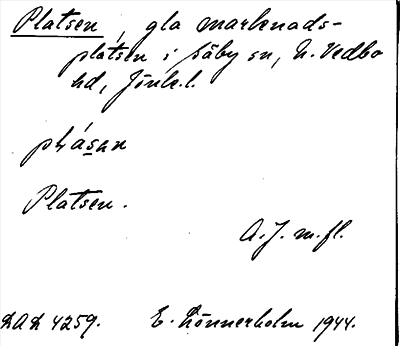 Platsen, gla marknads-
platsen i Säby sn, N. Vedbo
hd, Jönk. l.
plásan
Platsen.
A. J. m. fl.
DAL 4259. E. Lönnerholm 1944.